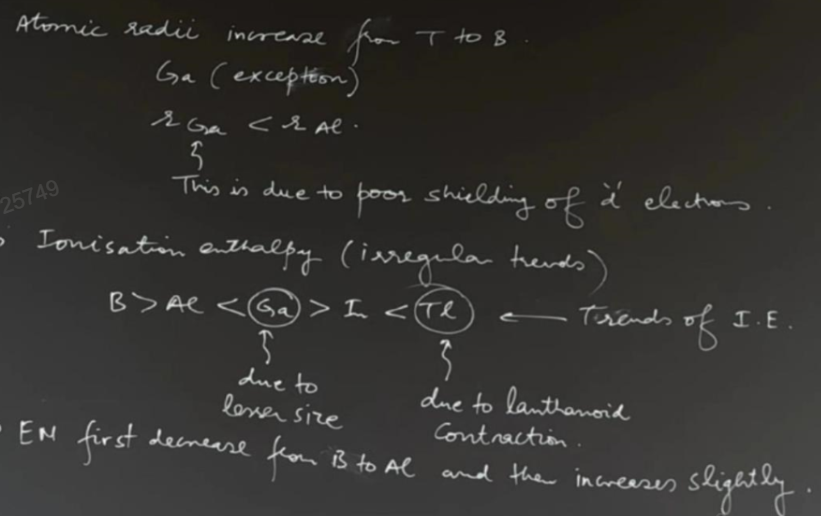 Atomic radii increase from T to B.
Ga (exception)
r Ga < r Al.
This is due to poor shielding of 'd' electrons.
25749
Ionisation enthalpy (irregular trends)
B > Al < Ga > In < Tl ← Trends of I.E.
due to
lesser size
due to lanthanoid
contraction.
EN first decrease from B to Al and then increases slightly.